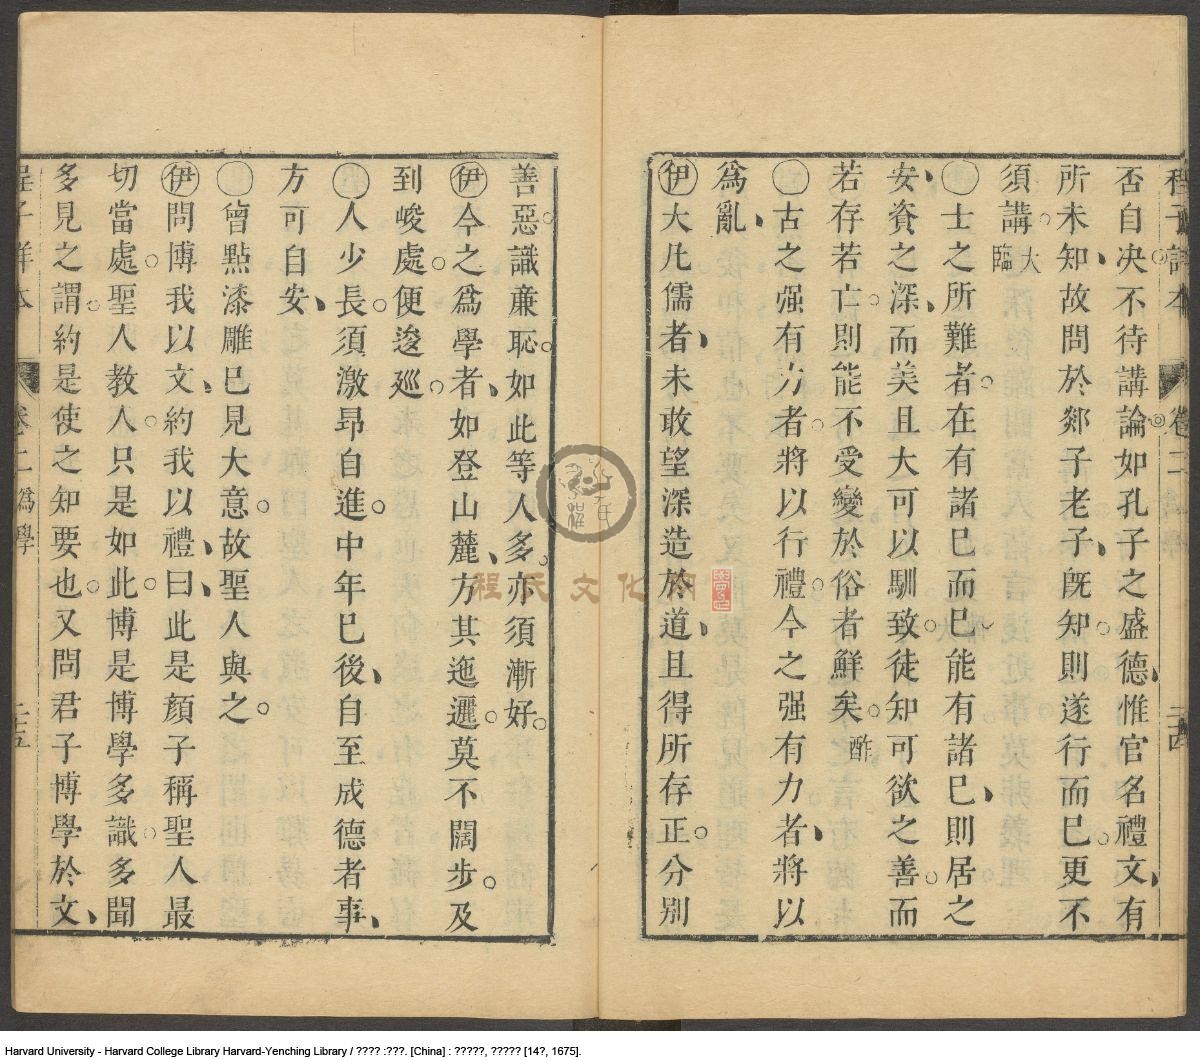 否自决不待講論如孔子之盛德惟官名禮文有
所未知故問於郯子老子旣知則遂行而已更不
須講大臨
士之所難者在有諸已而已能有諸已則居之
安資之深而美且大可以馴致徒知可欲之善而
若存若亡則能不受變於俗者鮮矣酢
古之强有力者將以行禮今之强有力者將以
爲亂
伊大凡儒者未敢望深造於道且得所存正分别
善惡識亷恥如此等人多亦須漸好
伊今之爲學者如登山麓方其迤邐莫不闊步及
到峻處便逡廵
人少長須激昂自進中年已後自至成德者事
方可自安
曾點漆雕已見大意故聖人與之
伊問博我以文約我以禮曰此是顔子稱聖人最
切當處聖人教人只是如此博是博學多識多聞
多見之謂約是使之知要也又問君子博學於文
卷二 爲學 二十五
程氏文化网
Harvard University - Harvard College Library Harvard-Yenching Library / ???? :???. [China] : ?????, ????? [14?, 1675].